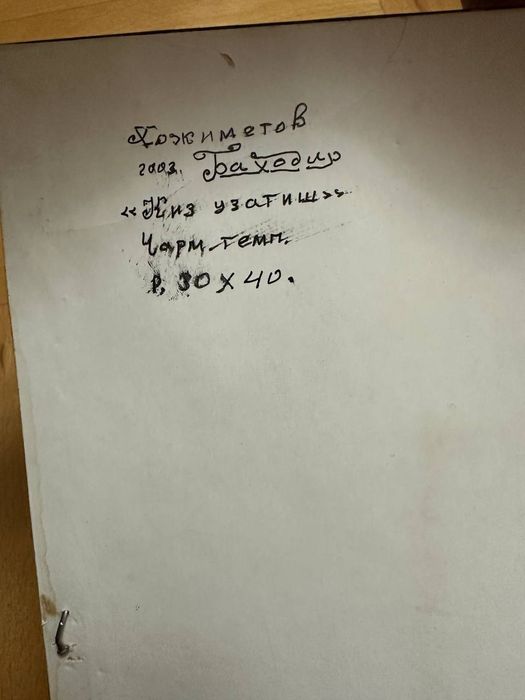 Хожиметов
2003. Баходир
«Киз узатиш»
Чарм. темп.
Р. 30 х 40.